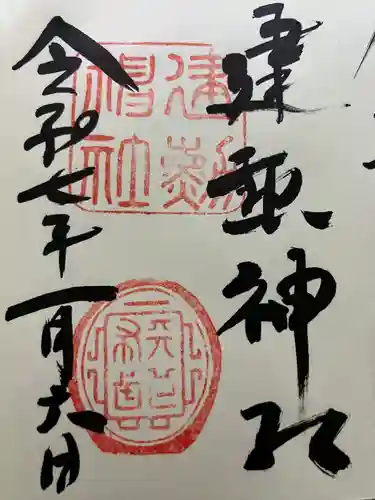 建勲神社
令和七年一月六日
建勲
神社